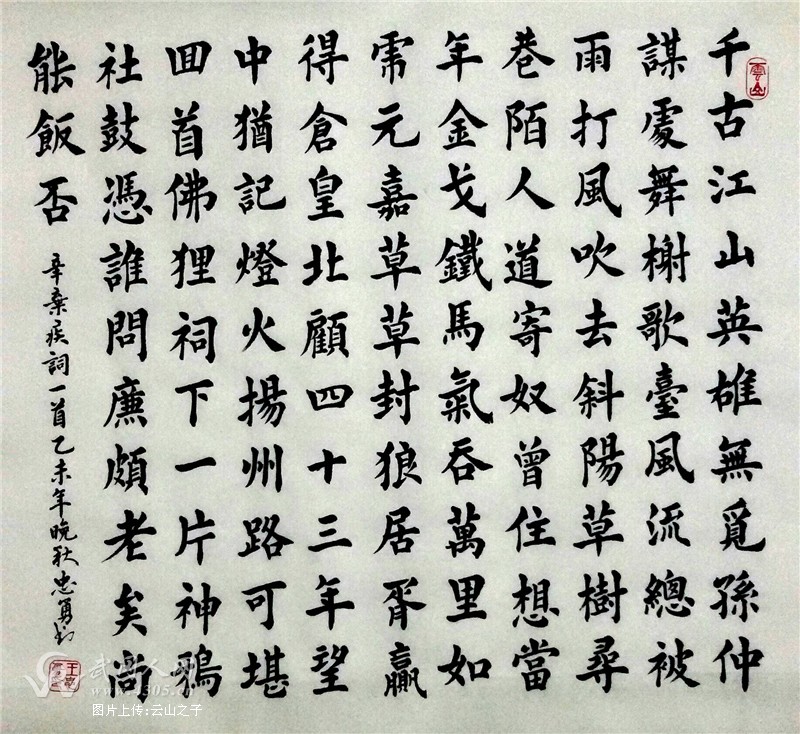 千古江山英雄無覓孫仲
謀處舞榭歌臺風流總被
雨打風吹去斜陽草樹尋
巷陌人道寄奴曾住想當
年金戈鐵馬氣吞萬里如
虎元嘉草草封狼居胥贏
得倉皇北顧四十三年望
中猶記燈火揚州路可堪
回首佛狸祠下一片神鴉
社鼓憑誰問廉頗老矣尚
能飯否
辛棄疾詞一首乙未年晚秋忠勇書
雲山
图片上传:云山之子